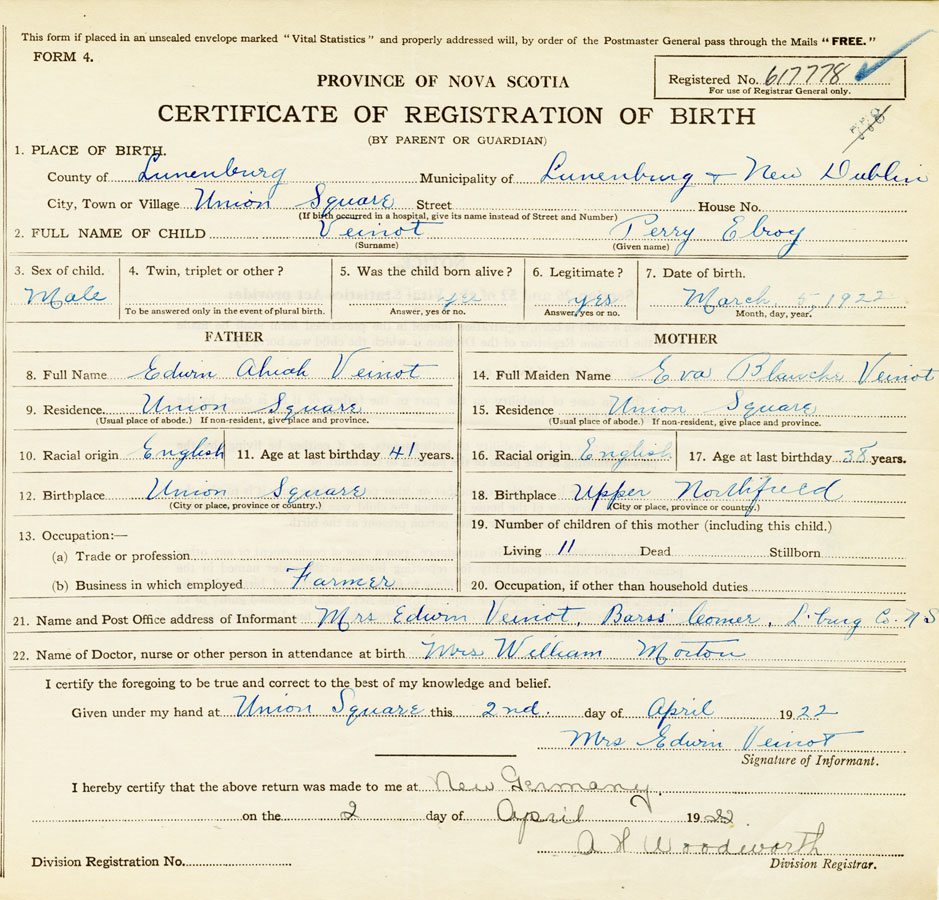 This form if placed in an unsealed envelope marked "Vital Statistics" and properly addressed will, by order of the Postmaster General pass through the Mails "FREE."
FORM 4.
Registered No. 617778
For use of Registrar General only.
PROVINCE OF NOVA SCOTIA
CERTIFICATE OF REGISTRATION OF BIRTH
(BY PARENT OR GUARDIAN)
1. PLACE OF BIRTH.
County of Lunenburg Municipality of Lunenburg + New Dublin
City, Town or Village Union Square Street House No.
(If birth occurred in a hospital, give its name instead of Street and Number)
2. FULL NAME OF CHILD Veinot Perry Elroy
(Surname) (Given name)
3. Sex of child. 4. Twin, triplet or other? 5. Was the child born alive? 6. Legitimate? 7. Date of birth.
Male yes yes March 5, 1922
To be answered only in the event of plural birth. Answer, yes or no. Answer, yes or no. Month, day, year.
FATHER MOTHER
8. Full Name Edwin Ahiah Veinot 14. Full Maiden Name Eva Blanche Veinot
9. Residence Union Square 15. Residence Union Square
(Usual place of abode.) If non-resident, give place and province. (Usual place of abode.) If non-resident, give place and province.
10. Racial origin English 11. Age at last birthday 41 years. 16. Racial origin English 17. Age at last birthday 38 years.
12. Birthplace Union Square 18. Birthplace Upper Northfield
(City or place, province or country.) (City or place, province or country.)
13. Occupation:— 19. Number of children of this mother (including this child.)
(a) Trade or profession Living 11 Dead Stillborn
(b) Business in which employed Farmer 20. Occupation, if other than household duties
21. Name and Post Office address of Informant Mrs Edwin Veinot, Barss' Corner, L'burg Co. N S
22. Name of Doctor, nurse or other person in attendance at birth Mrs William Morton
I certify the foregoing to be true and correct to the best of my knowledge and belief.
Given under my hand at Union Square this 2nd. day of April 1922
Mrs Edwin Veinot
Signature of Informant.
I hereby certify that the above return was made to me at New Germany,
on the 2 day of April 1922
A H Woodworth
Division Registration No. Division Registrar.